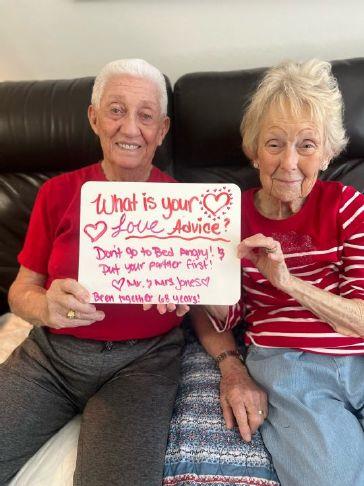 What is your
Love Advice?
Don't go to Bed Angry! &
Put your partner first!
Mr. & Mrs Jones
Been together 68 years!